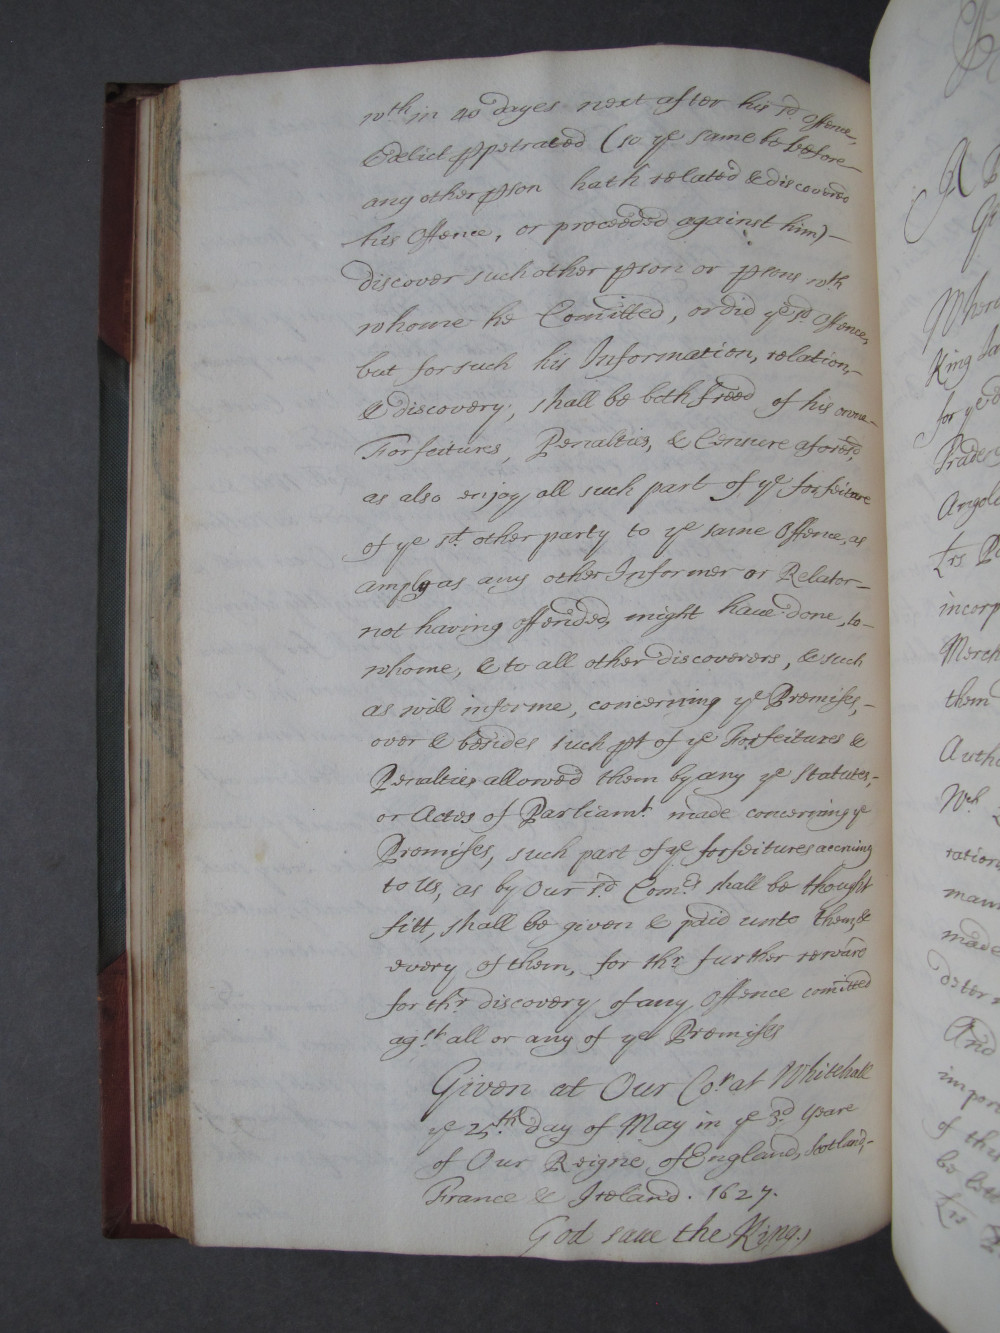 wth in 40 dayes next after his sd. Offence,
& delict ppetrated (so ye same be before
any other pson hath related & discovered
his Offence, or proceeded against him)–
discover such other pson or psons wth
whome he Comitted, or did ye sd. Offence,
but for such his Information, relation,
& discovery, shall be both freed of his owne
Forfeitures, Penalties, & Censure aforesd,
as also enjoy all such part of ye forfeiture
of ye sd. other party to ye same Offence, as
amply as any other Informer or Relator–
not having offended, might have done, to–
whome, & to all other discoverers, & such
as will informe, concerning ye Premises,–
over & besides such pt of ye Forfeitures &
Penalties allowed them by any ye Statutes,
or Actes of Parliamt. made concerning ye
Premises, such part of ye forfeitures accruing
to Us, as by Our sd. Comrs shall be thought
fitt, shall be given & paid unto them, &
every of them, for thr. further reward
for thr. discovery of any Offence comitted
agst. all or any of ye Premises
Given at Our Cot. at Whitehall
ye 25th. day of May in ye 3d. yeare
of Our Reigne of England, Scotland,–
France & Ireland. 1627.
God save the King.
A
Where
King
for ye
Traders
Lrs
incorp
Merch
them
Autho
Wch
ration
mann
made
deter
And
impor
of the
be
Lrs